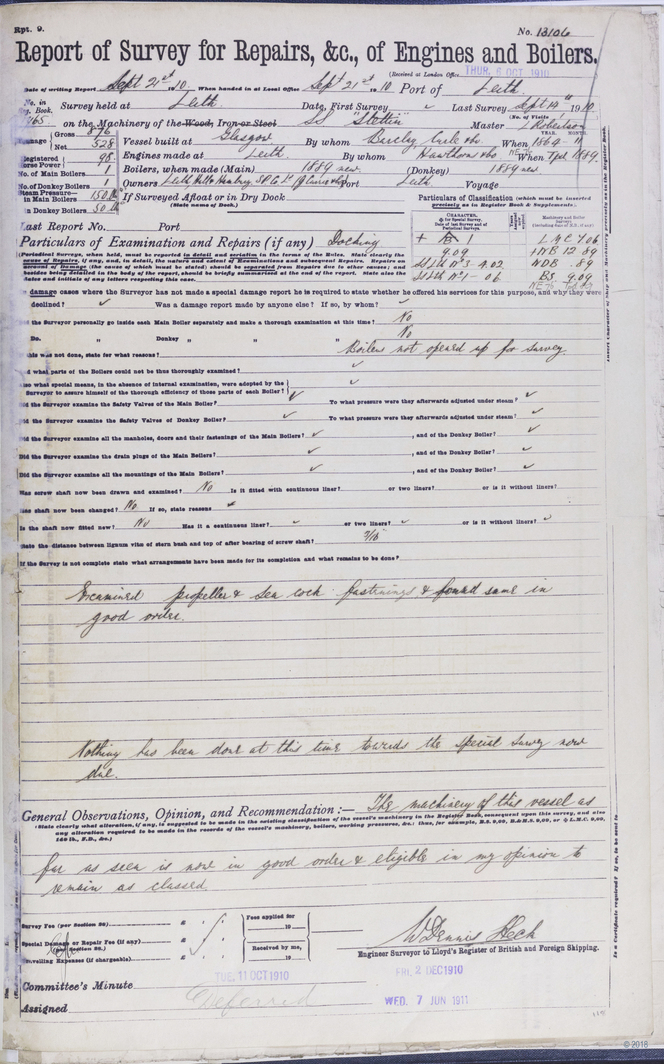 Rpt. 9.
No. 13106
Report of Survey for Repairs, &c., of Engines and Boilers.
(Received at London Office THUR. 6 OCT 1910
Date of writing Report Sept 21st 1910. When handed in at Local Office Sept 21st 1910 Port of Leith.
No. in Reg. Book. Survey held at Leith Date, First Survey Last Survey Sept 14th 1910
(No. of Visits)
765 on the Machinery of the Wood, Iron or Steel SS "Stettin" Master Robertson
Tonnage Gross 876
Net 528
Vessel built at Glasgow By whom Barclay Curle & Co When 1864-11
YEAR. MONTH.
Registered Horse Power 98
Engines made at Leith. By whom Hawthorn & Co When 1889.
No. of Main Boilers 1
Boilers, when made (Main) 1889 new. (Donkey) 1889 new
No. of Donkey Boilers 1
Owners Leith, Hull & Hamburg S.P. Co Ld Port Leith Voyage
Steam Pressure in Main Boilers 150 lb
If Surveyed Afloat or in Dry Dock
(State name of Dock.)
in Donkey Boilers 50 lb
Particulars of Classification (which must be inserted precisely as in Register Book & Supplements.)
Last Report No. Port
Particulars of Examination and Repairs (if any) Docking
LMC 7.06
9.09
NB 12.89
SS Lth No 3 4.02
NDB 89
SS Lth No 1-06
BS 9.09
(Periodical Surveys, when held, must be reported in detail and seriatim in the terms of the Rules. State clearly the cause of Repairs, if any, and, in detail, the nature and extent of Examinations and subsequent Repairs. Repairs on account of Damage (the cause of which must be stated) should be separated from Repairs due to other causes; and besides being detailed in the body of the report, should be briefly summarised at the end of the report. State also the dates and initials of any letters respecting this case.)
In damage cases where the Surveyor has not made a special damage report he is required to state whether he offered his services for this purpose, and why they were
declined? Was a damage report made by anyone else? If so, by whom?
Did the Surveyor personally go inside each Main Boiler separately and make a thorough examination at this time? No
Do. " Donkey " " " No
If this was not done, state for what reasons? Boilers not opened up for survey.
And what parts of the Boilers could not be thus thoroughly examined?
Also what special means, in the absence of internal examination, were adopted by the
Surveyor to assure himself of the thorough efficiency of those parts of each Boiler?
Did the Surveyor examine the Safety Valves of the Main Boiler? To what pressure were they afterwards adjusted under steam?
Did the Surveyor examine the Safety Valves of Donkey Boiler? To what pressure were they afterwards adjusted under steam?
Did the Surveyor examine all the manholes, doors and their fastenings of the Main Boilers? , and of the Donkey Boiler?
Did the Surveyor examine the drain plugs of the Main Boilers? , and of the Donkey Boiler?
Did the Surveyor examine all the mountings of the Main Boilers? , and of the Donkey Boiler?
Has screw shaft now been drawn and examined? No Is it fitted with continuous liner? or two liners? or is it without liners?
Has shaft now been changed? No If so, state reasons
Is the shaft now fitted new? No Has it a continuous liner? or two liners? or is it without liners?
State the distance between lignum vitæ of stern bush and top of after bearing of screw shaft? 7/16"
If the Survey is not complete state what arrangements have been made for its completion and what remains to be done?
Examined propeller & sea cock fastenings & found same in
good order.
Nothing has been done at this time towards the Special Survey now
due.
General Observations, Opinion, and Recommendation:— The machinery of this vessel as
(State clearly what alteration, if any, is suggested to be made in the existing classification of the vessel's machinery in the Register Book, consequent upon this survey, and also any alteration required to be made in the records of the vessel's machinery, boilers, working pressures, &c.: thus, for example, B.S. 9,00, B.&M.S. 9,00, or L.M.C. 9,00, 140 lb., F.D., &c.)
far as seen is now in good order & eligible in my opinion to
remain as classed.
Survey Fee (per Section 28) £ : :
Fees applied for 19
Special Damage or Repair Fee (if any) (per Section 28.) £ : :
Received by me, 19
Travelling Expenses (if chargeable) £ : :
W Dennis Heck
Engineer Surveyor to Lloyd's Register of British and Foreign Shipping.
Committee's Minute TUE. 11 OCT 1910 FRI. 2 DEC 1910
Assigned Deferred WED. 7 JUN 1911
© 2018